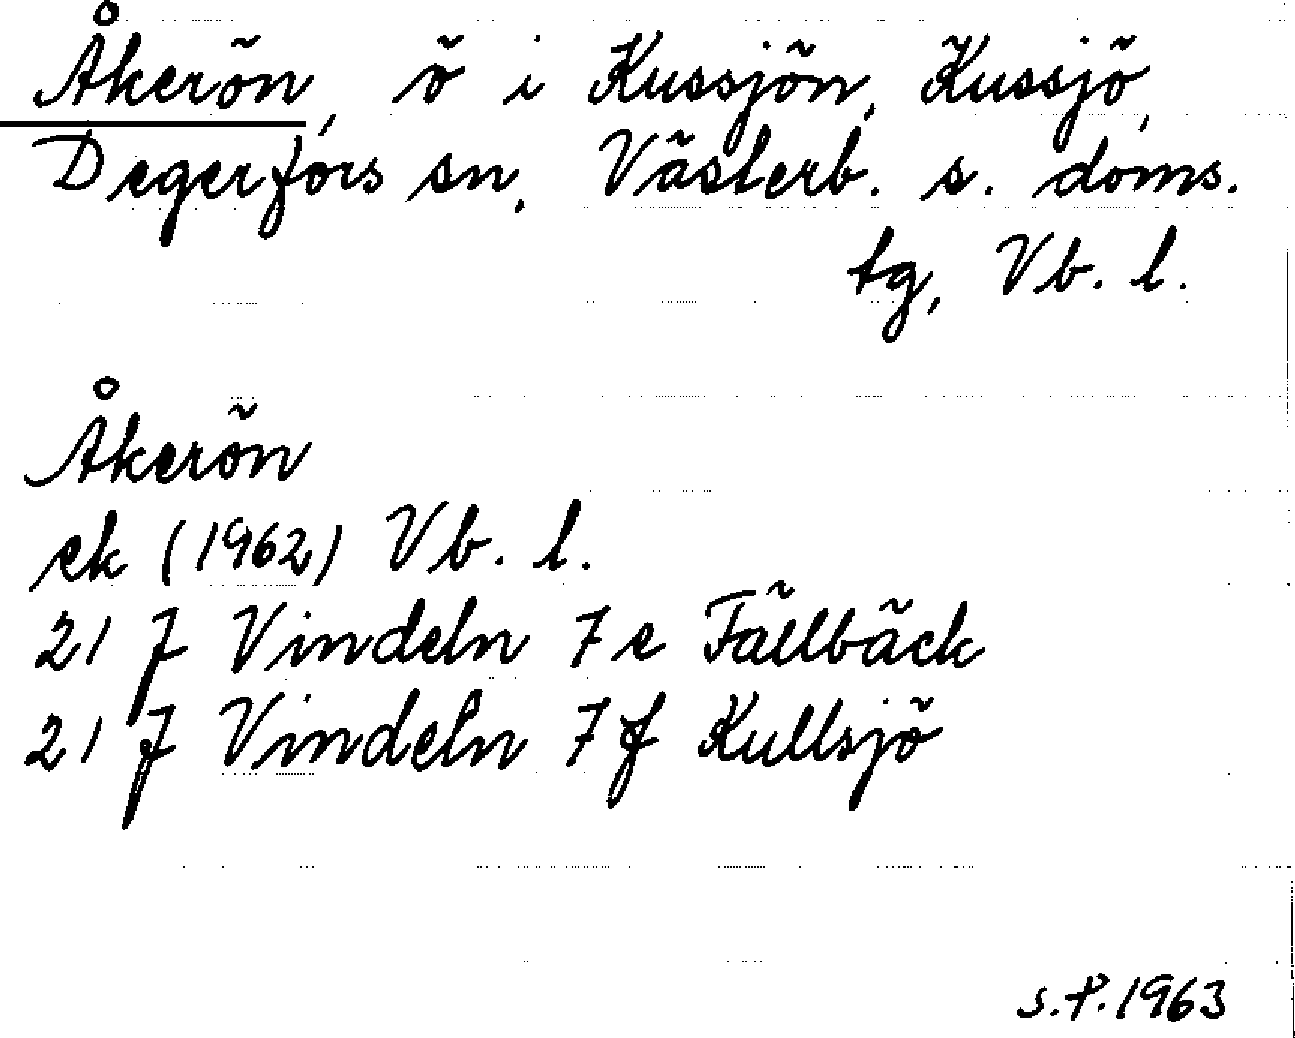 Åkerön, ö i Kussjön, Kussjö,
Degerfors sn, Västerb. s. doms.
tg, Vb. l.
Åkerön
ek (1962) Vb. l.
21 J Vindeln 7 e Fällbäck
21 J Vindeln 7 f Kullsjö
s.P.1963